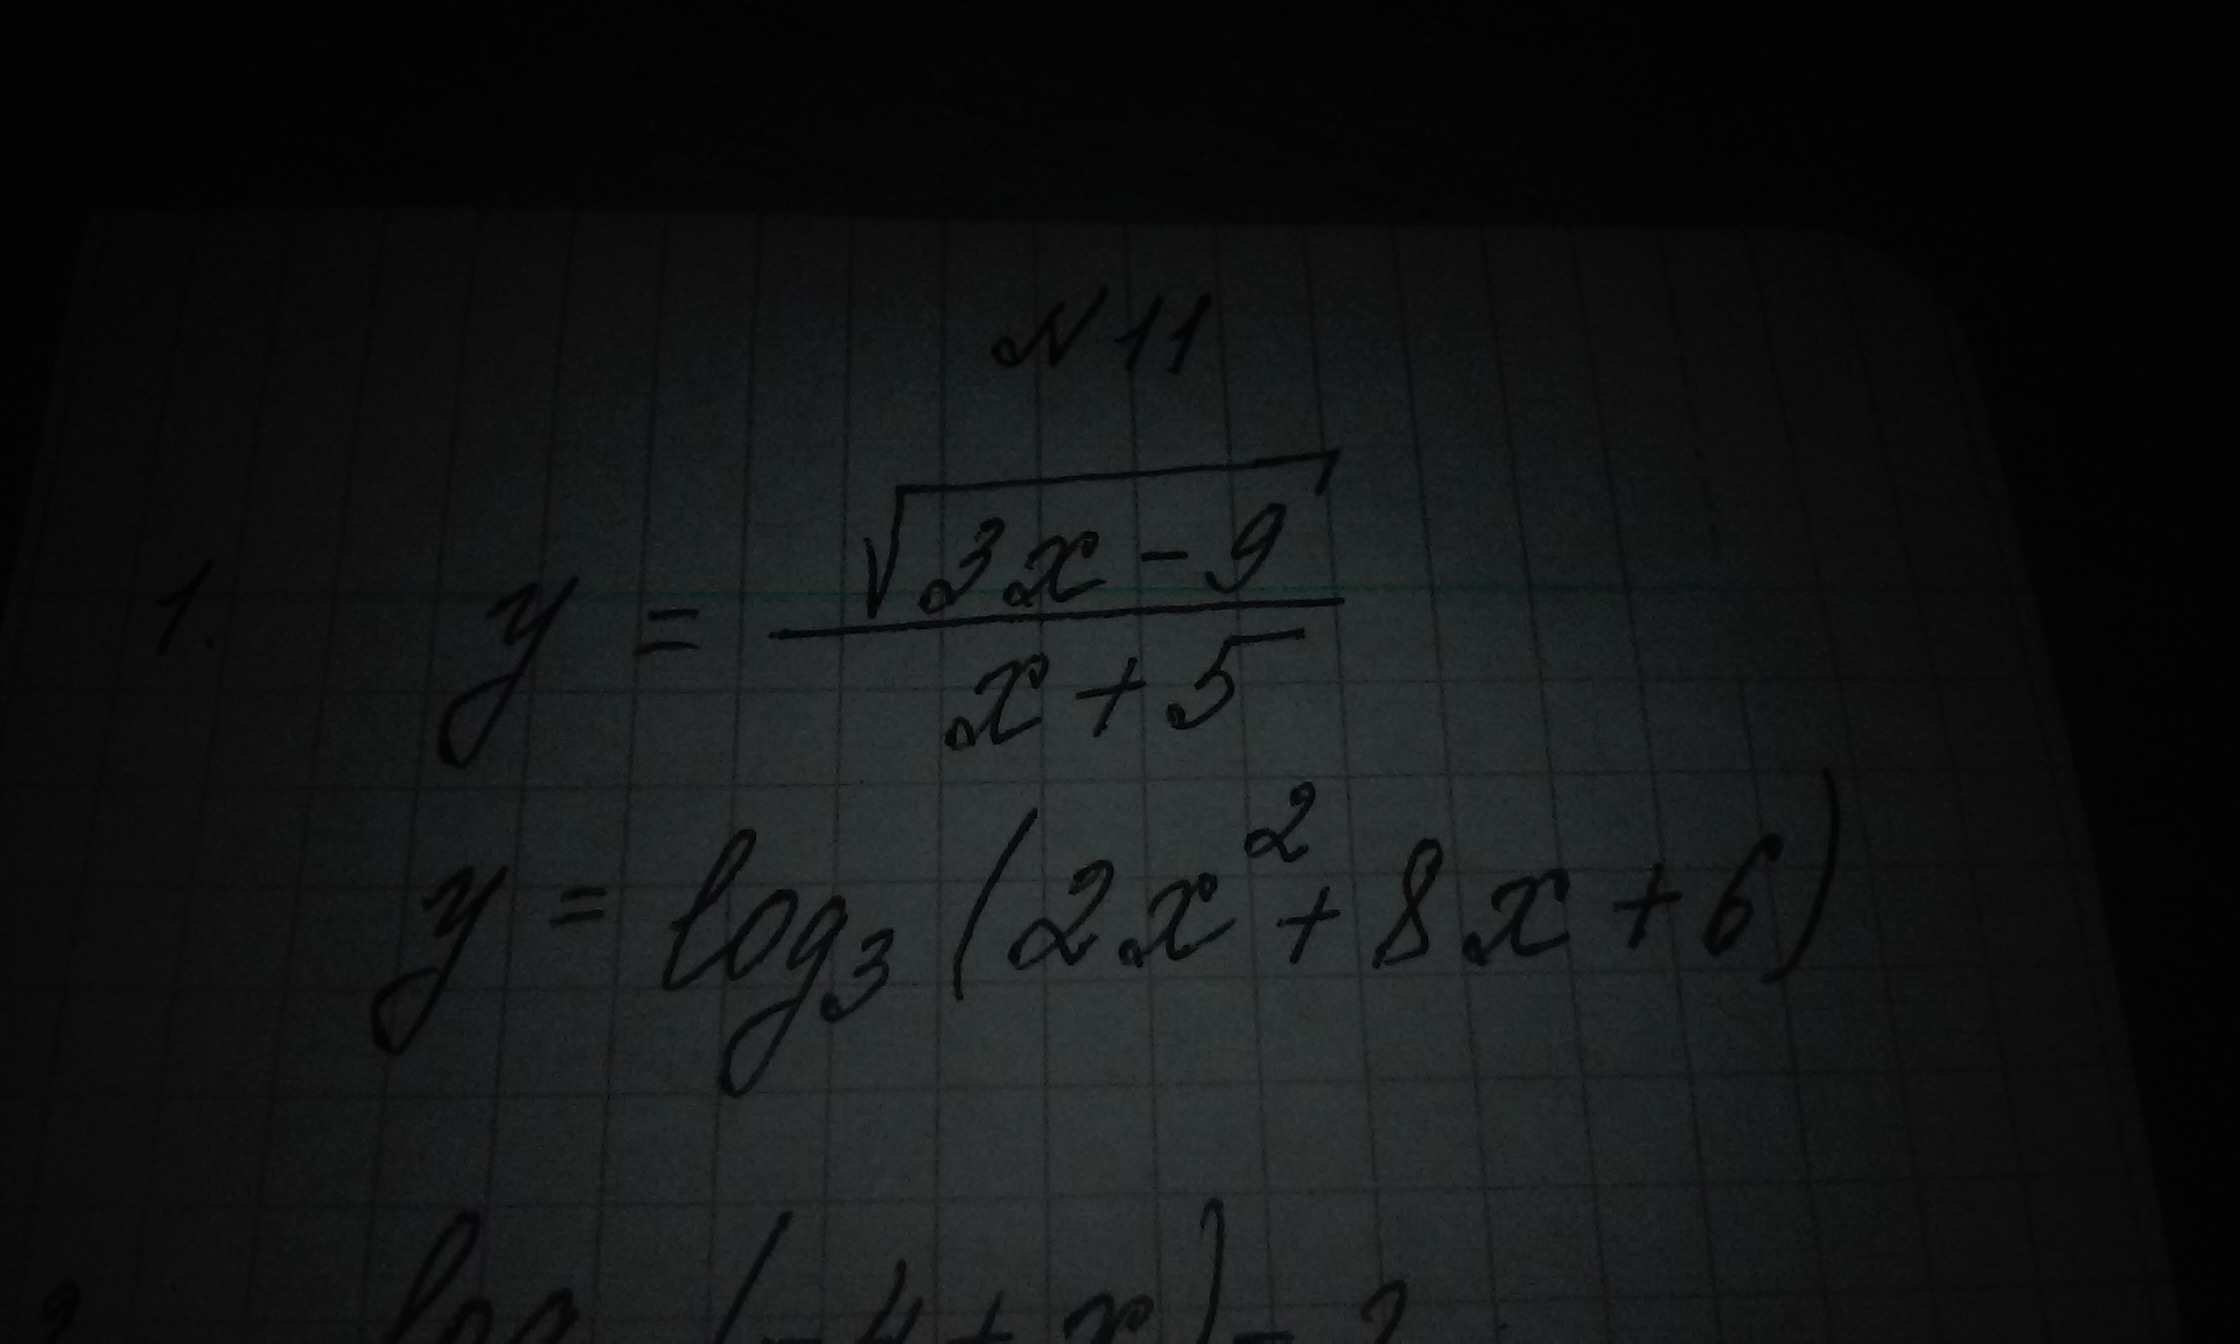 N 11
1. y = √(3x - 9) / (x + 5)
y = log₃ (2x² + 8x + 6)
log (-4 + x) =